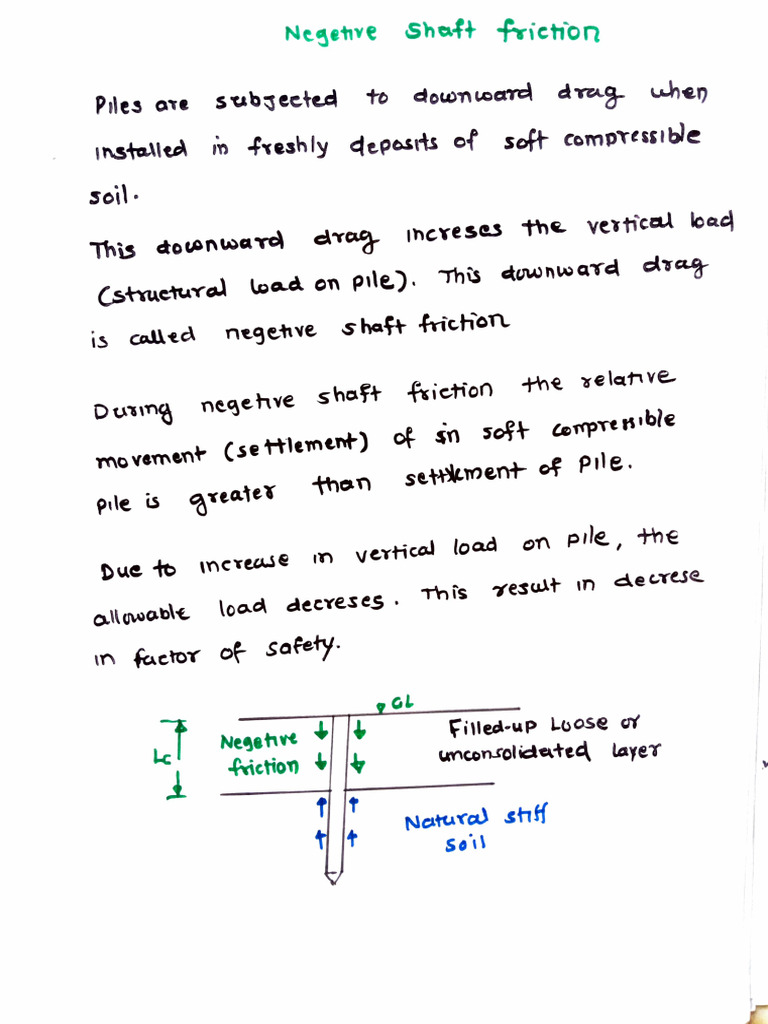 Negetive shaft friction
Piles are subjected to downward drag when
installed in freshly deposits of soft compressible
soil.
This downward drag increses the vertical load
(structural load on pile). This downward drag
is called negetive shaft friction
During negetive shaft friction the relative
movement (settlement) of in soft compressible
pile is greater than settlement of pile.
Due to increase in vertical load on pile, the
allowable load decreses. This result in decrese
in factor of safety.
GL
Lc
Negetive
friction
Filled-up loose or
unconsolidated layer
Natural stiff
soil